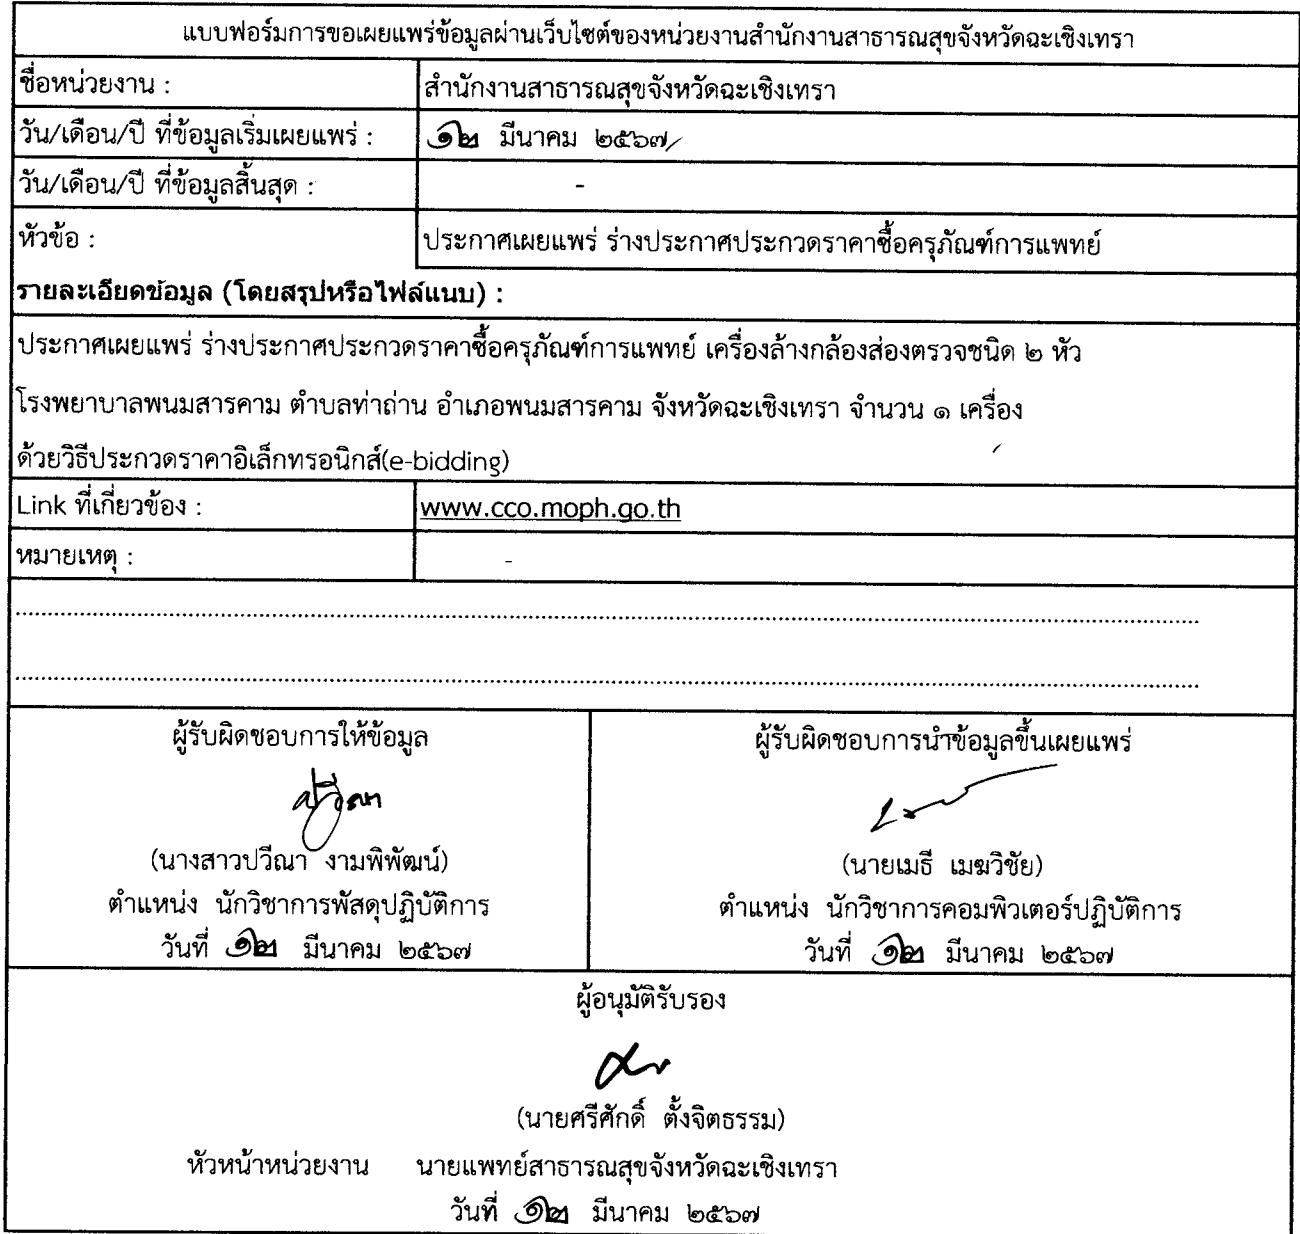 แบบฟอร์มการขอเผยแพร่ข้อมูลผ่านเว็บไซต์ของหน่วยงานสำนักงานสาธารณสุขจังหวัดฉะเชิงเทรา
ชื่อหน่วยงาน : สำนักงานสาธารณสุขจังหวัดฉะเชิงเทรา
วัน/เดือน/ปี ที่ข้อมูลเริ่มเผยแพร่ : ๑๒ มีนาคม ๒๕๖๗
วัน/เดือน/ปี ที่ข้อมูลสิ้นสุด : -
หัวข้อ : ประกาศเผยแพร่ ร่างประกาศประกวดราคาซื้อครุภัณฑ์การแพทย์
รายละเอียดข้อมูล (โดยสรุปหรือไฟล์แนบ) :
ประกาศเผยแพร่ ร่างประกาศประกวดราคาซื้อครุภัณฑ์การแพทย์ เครื่องล้างกล้องส่องตรวจชนิด ๒ หัว
โรงพยาบาลพนมสารคาม ตำบลท่าถ่าน อำเภอพนมสารคาม จังหวัดฉะเชิงเทรา จำนวน ๑ เครื่อง
ด้วยวิธีประกวดราคาอิเล็กทรอนิกส์(e-bidding)
Link ที่เกี่ยวข้อง : www.cco.moph.go.th
หมายเหตุ : -
ผู้รับผิดชอบการให้ข้อมูล ผู้รับผิดชอบการนำข้อมูลขึ้นเผยแพร่
(นางสาวปวีณา งามพิพัฒน์) (นายเมธี เมฆวิชัย)
ตำแหน่ง นักวิชาการพัสดุปฏิบัติการ ตำแหน่ง นักวิชาการคอมพิวเตอร์ปฏิบัติการ
วันที่ ๑๒ มีนาคม ๒๕๖๗ วันที่ ๑๒ มีนาคม ๒๕๖๗
ผู้อนุมัติรับรอง
(นายศรีศักดิ์ ตั้งจิตธรรม)
หัวหน้าหน่วยงาน นายแพทย์สาธารณสุขจังหวัดฉะเชิงเทรา
วันที่ ๑๒ มีนาคม ๒๕๖๗